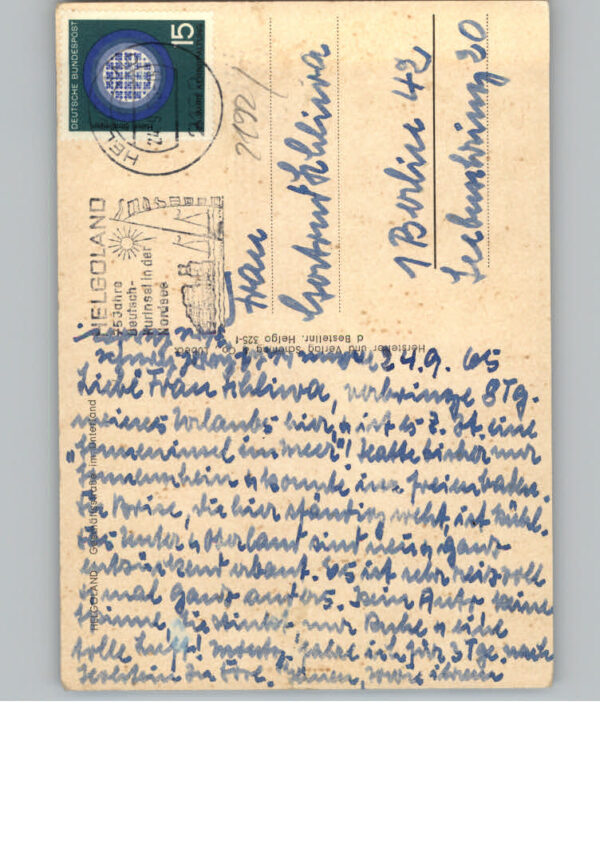 DEUTSCHE BUNDESPOST
15
HEL
24.9
2192/
HELGOLAND
75 Jahre
Deutsch-
Kurinsel in der
Nordsee
Frau
Gertrud
1 Berlin 42
20
Hersteller und Verlag Schöning & Co., Lübeck
Bestellnr. Helgo 325-f
HELGOLAND Geschäftsstraße im Unterland
24.9.65
Liebe Frau, verbringe 8 Tg.
meines Urlaubs hier, es ist z. Zt. eine
"Sonneninsel im Meer"! Hatte bisher nur
Sonnenschein u. konnte im Freien baden.
Die Brise, die hier ständig weht, ist kühl.
Das Unter u. Oberland sind neu u. ganz
entzückend erbaut. Es ist sehr reizvoll
mal ganz anders. Kein Auto keine
nur Ruhe u. eine
tolle Luft! fahre ich für 3 Tge. nach
Holstein zu sowie ihrem